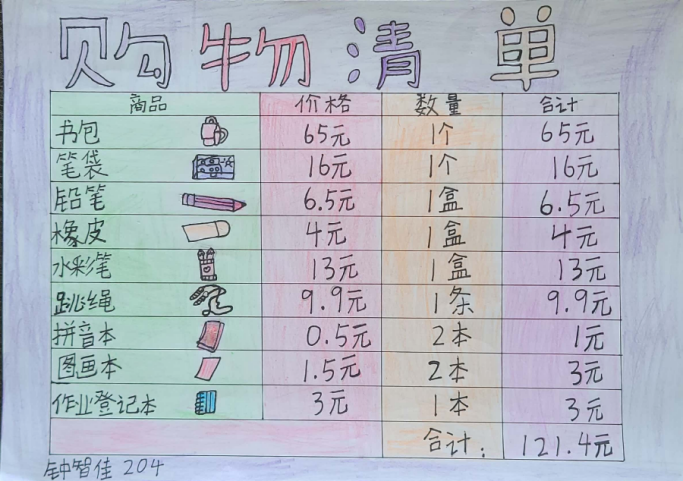 购物清单
商品 价格 数量 合计
书包 65元 1个 65元
笔袋 16元 1个 16元
铅笔 6.5元 1盒 6.5元
橡皮 4元 1盒 4元
水彩笔 13元 1盒 13元
跳绳 9.9元 1条 9.9元
拼音本 0.5元 2本 1元
图画本 1.5元 2本 3元
作业登记本 3元 1本 3元
合计: 121.4元
钟智佳 204